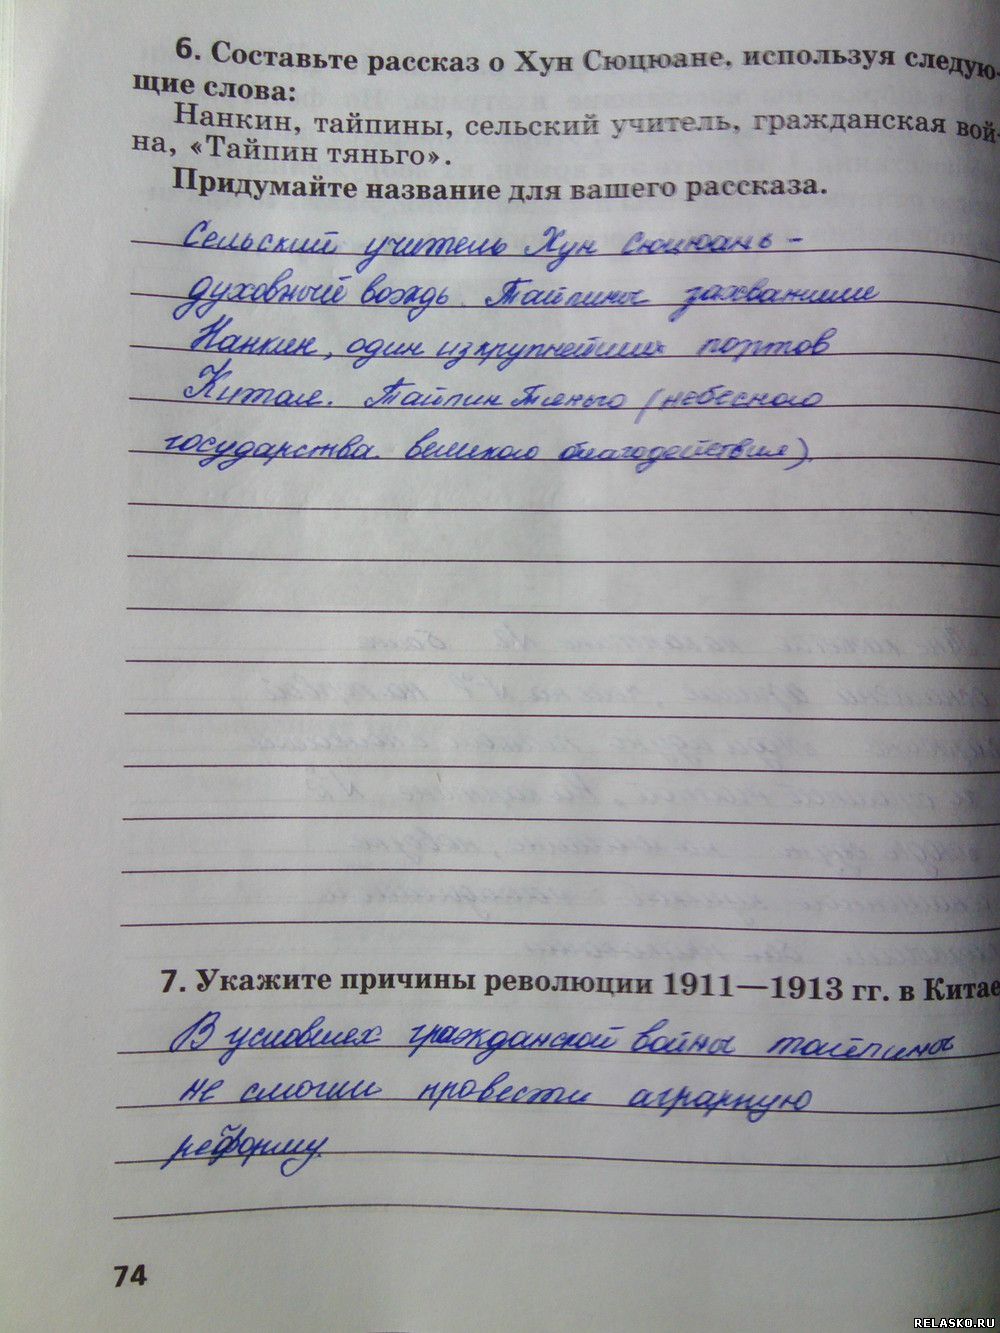 6. Составьте рассказ о Хун Сюцюане, используя следую-
щие слова:
Нанкин, тайпины, сельский учитель, гражданская вой-
на, «Тайпин тяньго».
Придумайте название для вашего рассказа.
Сельский учитель Хун Сюцюань -
духовный вождь. Тайпины захватили
Нанкин, один из крупнейших портов
Китая. Тайпин Тяньго (небесного
государства великого благоденствия).
7. Укажите причины революции 1911—1913 гг. в Китае
В условиях гражданской войны тайпины
не смогли провести аграрную
реформу.
74
RELASKO.RU